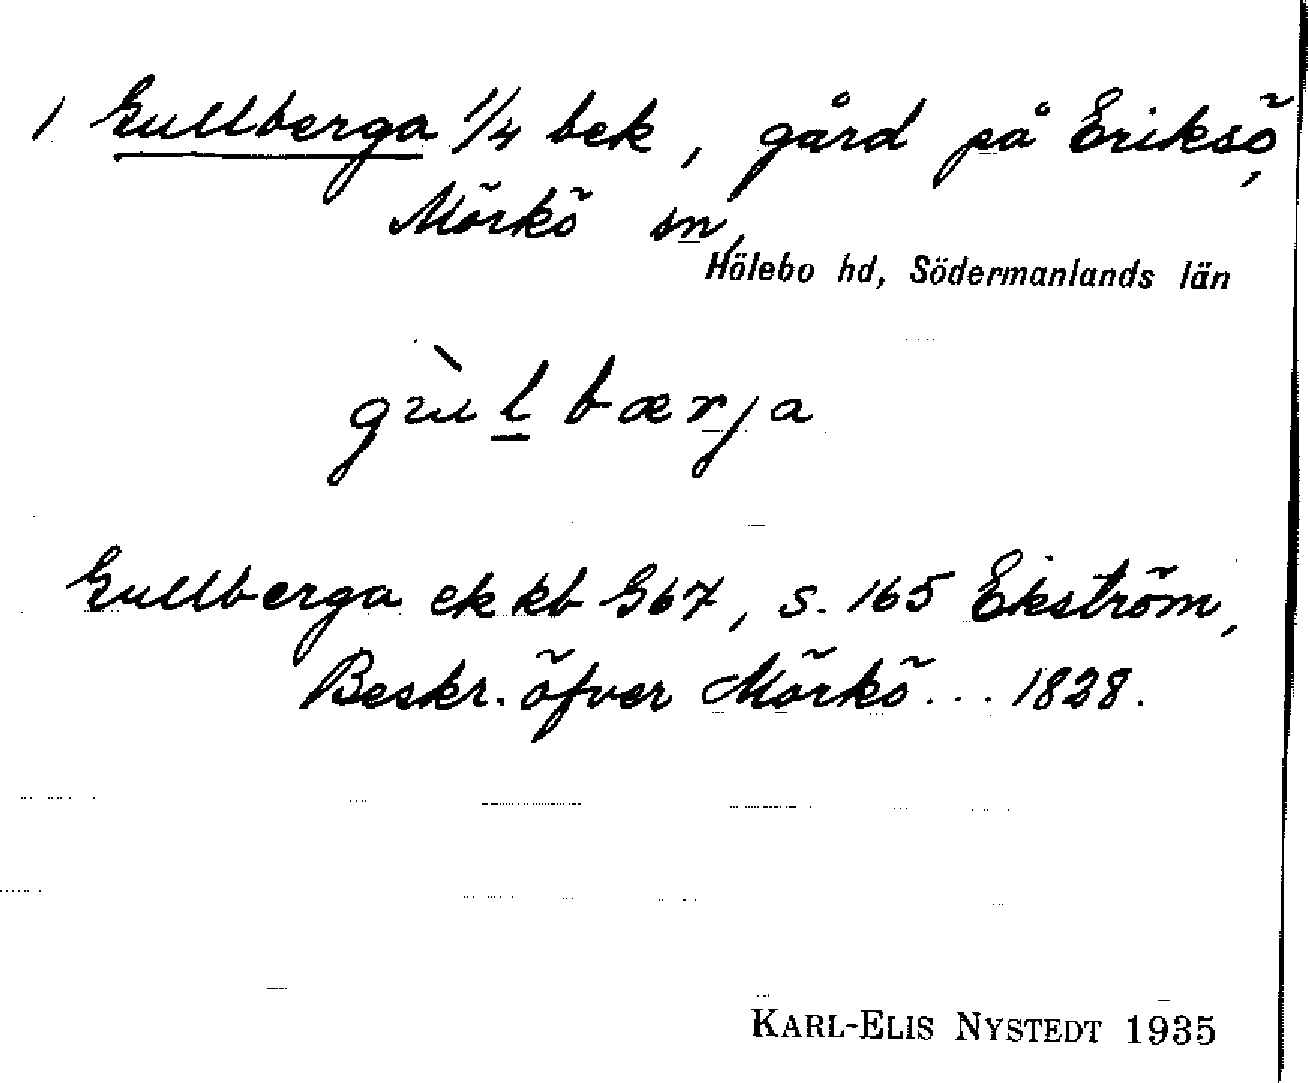 1 Gullberga 1/4 bek, gård på Eriksö,
Mörkö sn,
Hölebo hd, Södermanlands län
gùlbærja
Gullberga ek kb 967, s. 165 Ekström,
Beskr. öfver Mörkö... 1828.
KARL-ELIS NYSTEDT 1935